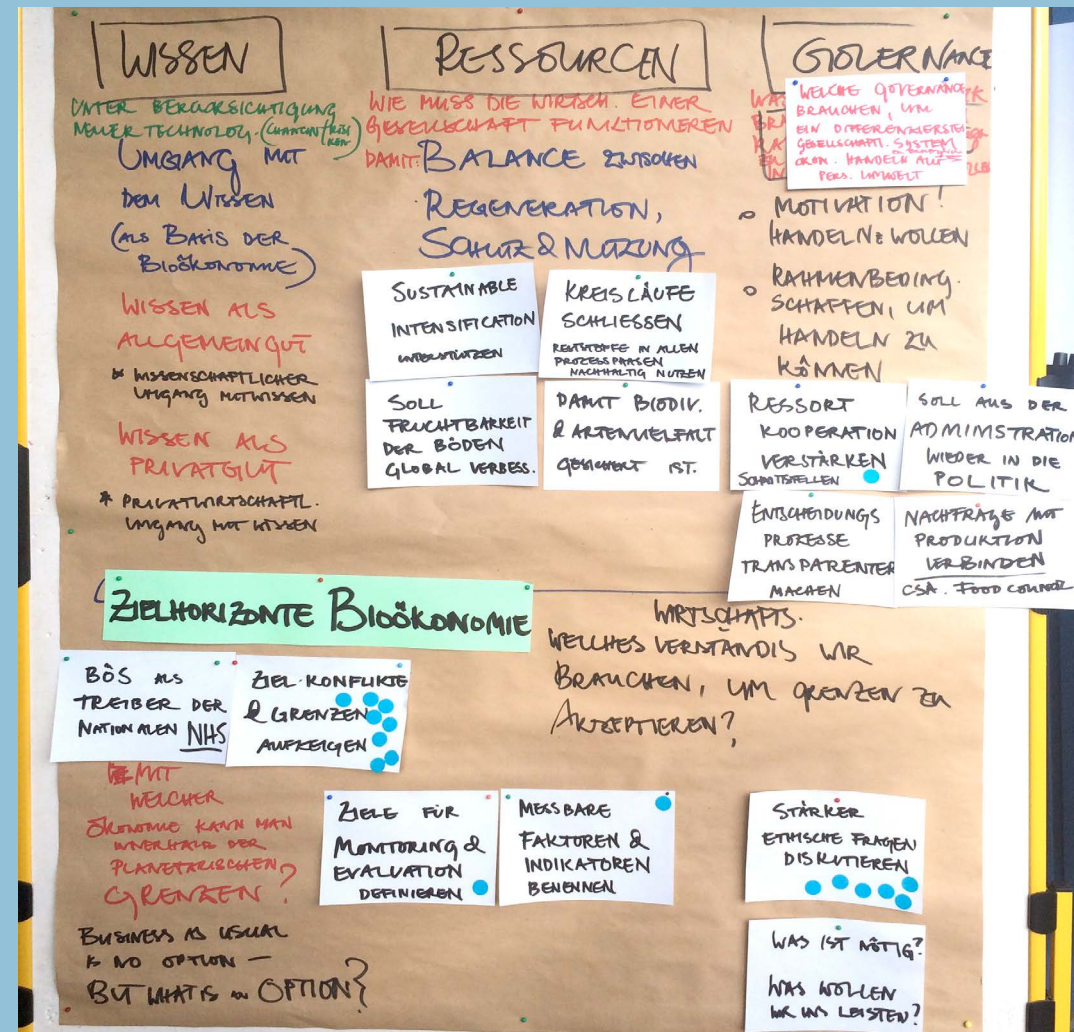 WISSEN
UNTER BERÜCKSICHTIGUNG
NEUER TECHNOLOG. (CHANCEN/RISIKEN)
UMGANG MIT
DEM WISSEN
(ALS BASIS DER
BIOÖKONOMIE)
WISSEN ALS
ALLGEMEINGUT
* WISSENSCHAFTLICHER
UMGANG MIT WISSEN
WISSEN ALS
PRIVATGUT
* PRIVATWIRTSCHAFTL.
UMGANG MIT WISSEN
RESSOURCEN
WIE MUSS DIE WIRTSCH. EINER
GESELLSCHAFT FUNKTIONIEREN
DAMIT: BALANCE ZWISCHEN
REGENERATION,
SCHUTZ & NUTZUNG
SUSTAINABLE
INTENSIFICATION
UNTERSTÜTZEN
KREISLÄUFE
SCHLIESSEN
RESTSTOFFE IN ALLEN
PROZESSPHASEN
NACHHALTIG NUTZEN
SOLL
FRUCHTBARKEIT
DER BÖDEN
GLOBAL VERBESS.
DAMIT BIODIV.
& ARTENVIELFALT
GESICHERT IST.
GOVERNANCE
WELCHE GOVERNANCE
BRAUCHEN, UM
EIN DIFFERENZIERSTES
GESELLSCHAFTL. SYSTEM
ÖKON. HANDELN AUF
PERS. UMWELT
o MOTIVATION!
HANDELN: WOLLEN
o RAHMENBEDING.
SCHAFFEN, UM
HANDELN ZU
KÖNNEN
RESSORT
KOOPERATION
VERSTÄRKEN
SCHNITTSTELLEN
SOLL AUS DER
ADMINISTRATION
WIEDER IN DIE
POLITIK
ENTSCHEIDUNGS
PROZESSE
TRANSPARENTER
MACHEN
NACHFRAGE MIT
PRODUKTION
VERBINDEN
CSA. FOOD COUNCIL
ZIELHORIZONTE BIOÖKONOMIE
WIRTSCHAFTS.
WELCHES VERSTÄNDIS WIR
BRAUCHEN, UM GRENZEN ZU
AKZEPTIEREN?
BÖS ALS
TREIBER DER
NATIONALEN NHS
ZIEL-KONFLIKTE
& GRENZEN
AUFZEIGEN
MIT
WELCHER
ÖKONOMIE KANN MAN
INNERHALB DER
PLANETARISCHEN
GRENZEN?
BUSINESS AS USUAL
IS NO OPTION –
BUT WHAT IS an OPTION?
ZIELE FÜR
MONITORING &
EVALUATION
DEFINIEREN
MESSBARE
FAKTOREN &
INDIKATOREN
BENENNEN
STÄRKER
ETHISCHE FRAGEN
DISKUTIEREN
WAS IST NÖTIG?
WAS WOLLEN
WIR UNS LEISTEN?